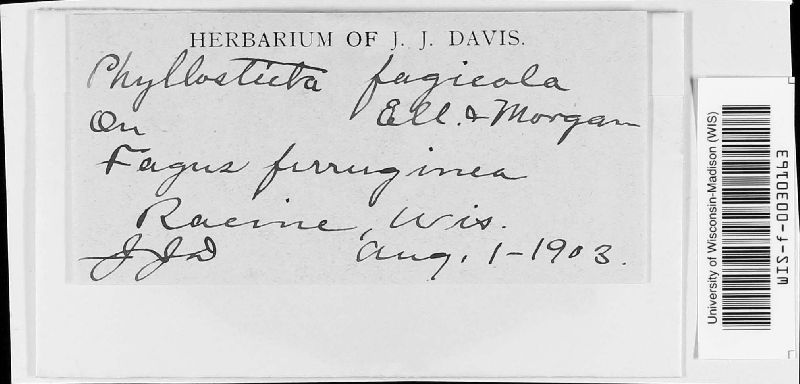 HERBARIUM OF J. J. DAVIS.
Phyllosticta fagicola
Ell. & Morgan
On
Fagus ferruginea
Racine, Wis.
JJD Aug. 1-1903.
University of Wisconsin-Madison (WIS)
WIS-f-0030163